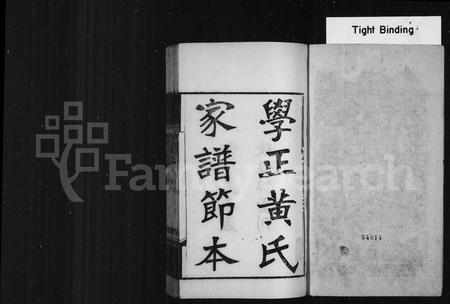 Tight Binding
學正黃氏
家譜節本
54014
FamilySearch